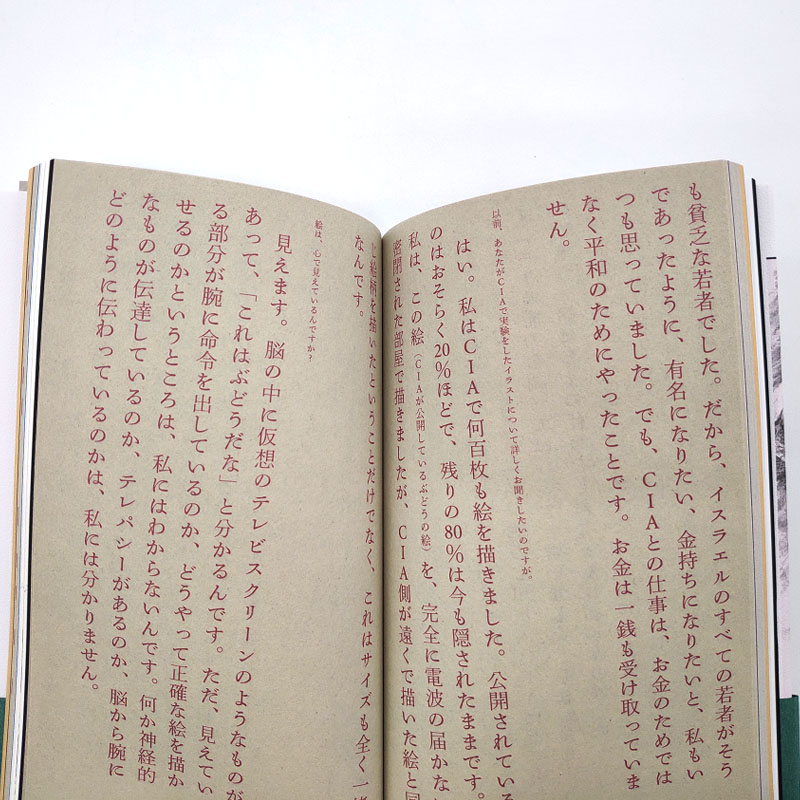 も貧乏な若者でした。だから、イスラエルのすべての若者がそう
であったように、有名になりたい、金持ちになりたいと、私もい
つも思っていました。でも、CIAとの仕事は、お金のためでは
なく平和のためにやったことです。お金は一銭も受け取っていま
せん。
以前、あなたがCIAで実験をしたイラストについて詳しくお聞きしたいのですが。
はい。私はCIAで何百枚も絵を描きました。公開されている
のはおそらく20%ほどで、残りの80%は今も隠されたままです。
私は、この絵（CIAが公開しているぶどうの絵）を、完全に電波の届かな
密閉された部屋で描きましたが、CIA側が遠くで描いた絵と同
じ絵柄を描いたということだけでなく、これはサイズも全く一緒
なんです。
絵は、心で見えているんですか？
見えます。脳の中に仮想のテレビスクリーンのようなものが
あって、「これはぶどうだな」と分かるんです。ただ、見えてい
る部分が腕に命令を出しているのか、どうやって正確な絵を描か
せるのかというところは、私にはわからないんです。何か神経的
なものが伝達しているのか、テレパシーがあるのか、脳から腕に
どのように伝わっているのかは、私には分かりません。